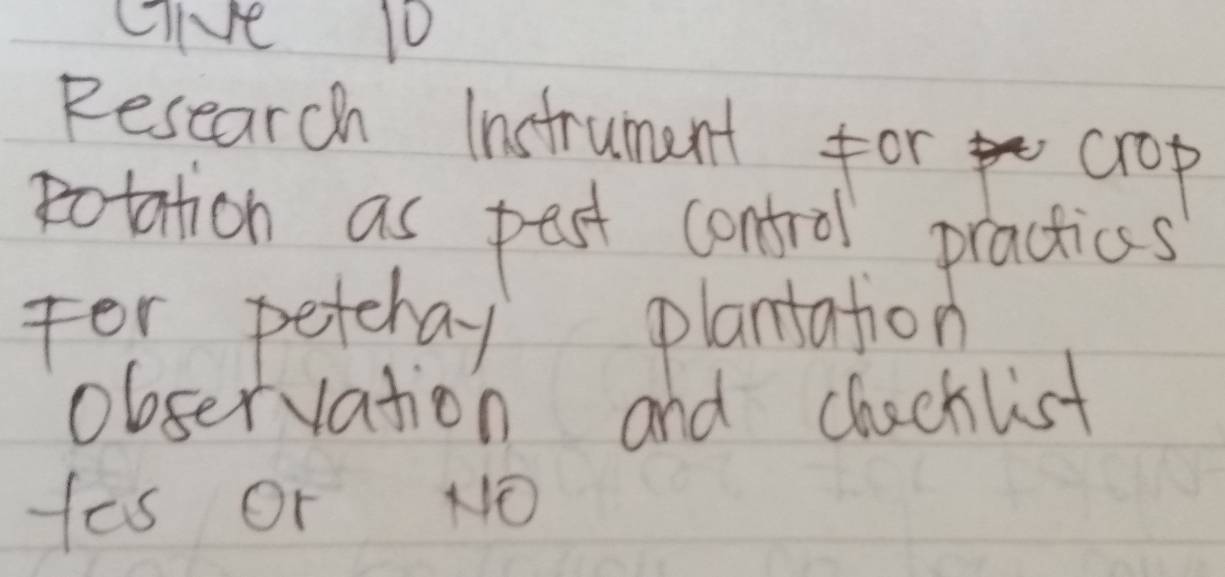 Give 10
Research Instrument for crop
Rotation as pest control practices
For petchay plantation
Observation and checklist
Yes or NO